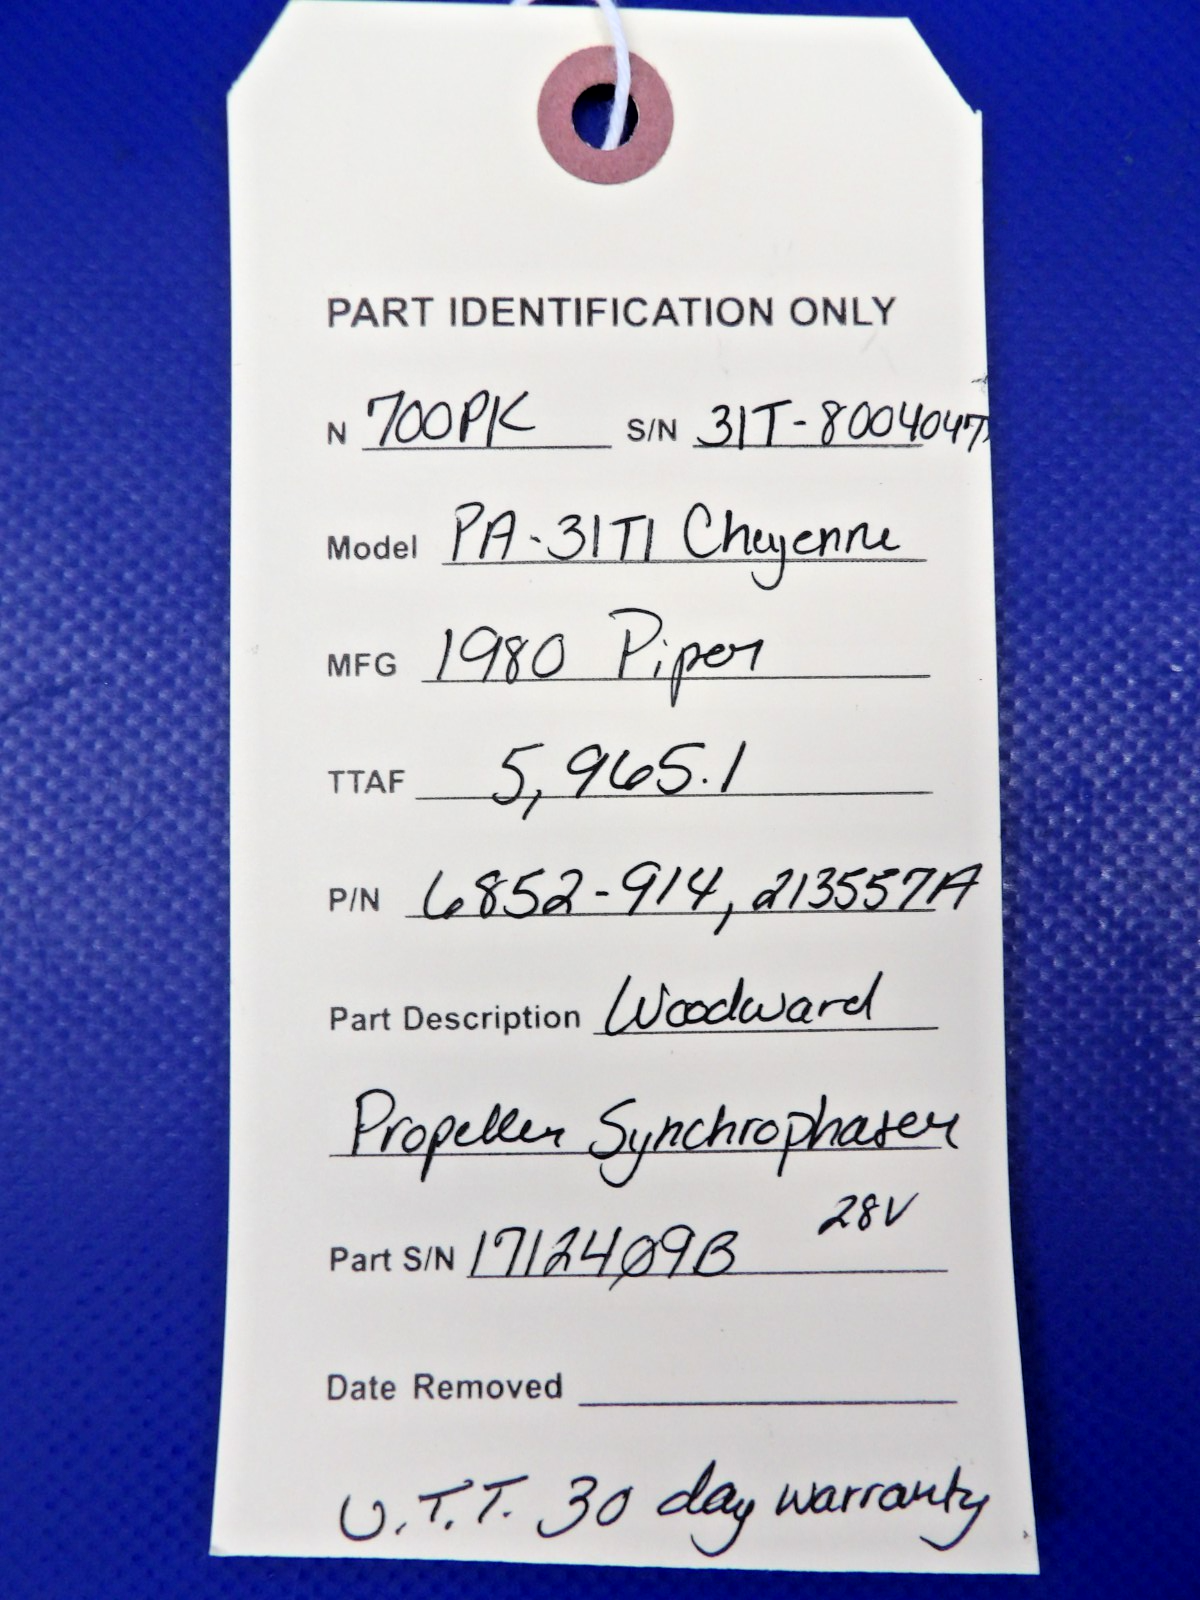 PART IDENTIFICATION ONLY
N 700PK S/N 31T-8004047
Model PA-31T1 Cheyenne
MFG 1980 Piper
TTAF 5,965.1
P/N 6852-914, 213557A
Part Description Woodward
Propeller Synchrophaser
28V
Part S/N 1712409B
Date Removed
U.T.T. 30 day warranty